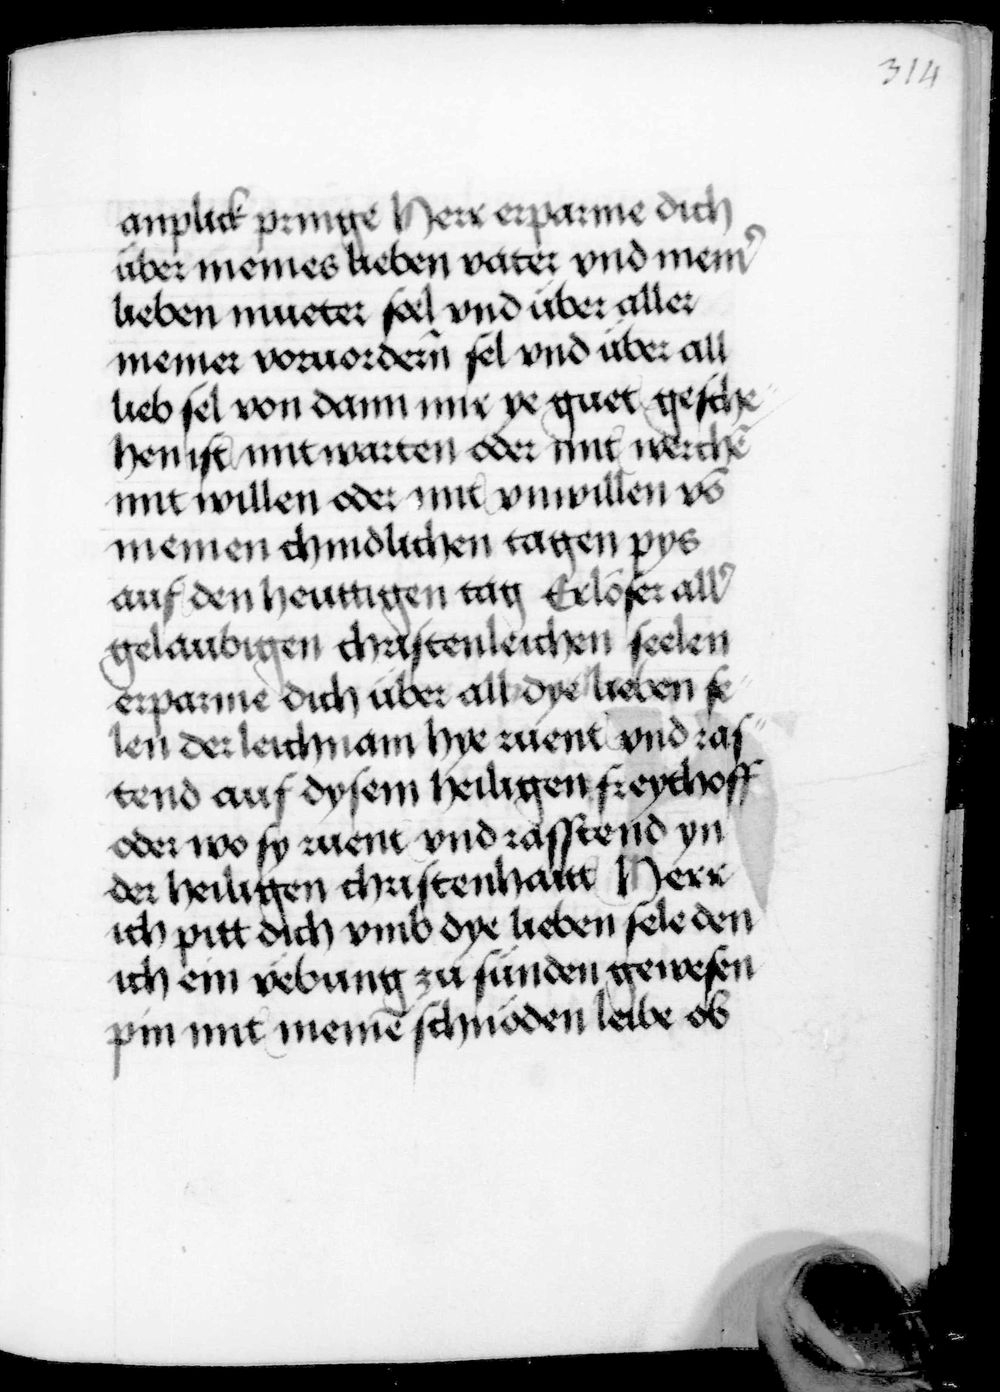 314
anplick pringe Herr erparme dich
über meines lieben vater vnd mein̕
lieben mueter seel vnd über aller
meiner voruordern̄ sel vnd über all
lieb sel von dann mir ye guet gesche-
hen ist mit warten oder mit werchē
mit willen oder mit vnwillen vō
meinen chindlichen tagen pys
auf den heuttigen tag Erlöser all̕
gelaubigen christenleichen seelen
erparme dich über all dye lieben se-
len der leichnam hye ruent vnd ras-
tend auf dysem heiligen freythoff
oder wo sy ruent vnd rasstend yn
der heiligen christenhaitt Herr
ich pitt dich vmb dye lieben sele den
ich ein vebung zu sünden gewesen
pin mit meinē schnöden leibe ob